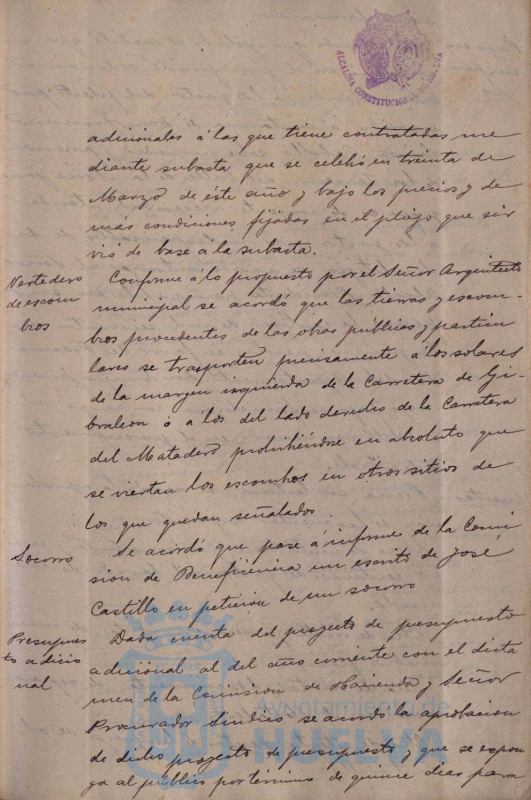 ALCALDIA CONSTITUCIONAL DE HUELVA
adicionales á las que tiene contratadas me
diante subasta que se celebró en treinta de
Marzo de éste año y bajo los precios y de
más condiciones fijadas en el pliego que sir
vió de base a la subasta.
Vertedero
de escom
bros
Conforme á lo propuesto por el Señor Arquitecto
municipal se acordó que las tierras y escom
bros procedentes de las obras públicas y particu
lares se trasporten precisamente á los solares
de la margen izquierda de la Carretera de Gi
braleon ó á los del lado derecho de la Carretera
del Matadero prohibiéndose en absoluto que
se viertan los escombros en otros sitios de
los que quedan señalados.
Socorro
Se acordó que pase á informe de la Comi
sion de Beneficencia un escrito de José
Castillo en peticion de un socorro
Presupues
to adicio
nal
Dada cuenta del proyecto de presupuesto
adicional al del año corriente con el dicta
men de la Comision de Hacienda y Señor
Procurador Sindico se acordó la aprobacion
de dicho proyecto de presupuesto y que se expon
ga al público por término de quince dias para
Ayuntamiento de
HUELVA